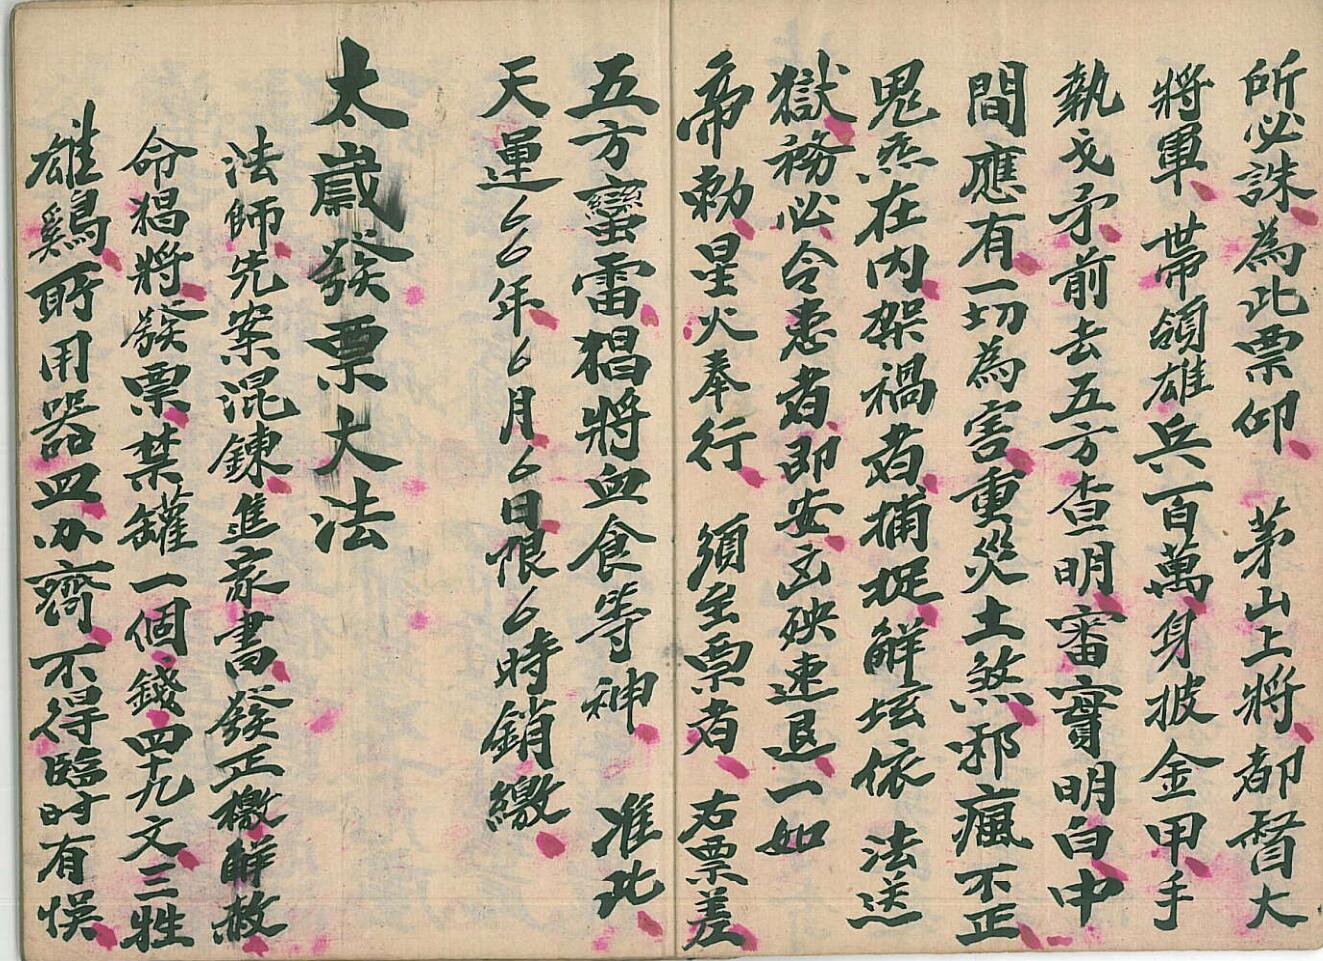 所必誅為此票仰　茅山上將都督大
將軍帶領雄兵一百萬身披金甲手
執戈矛前去五方查明審寔明白中
間應有一切為害重災土煞邪瘋不正
鬼炁在内架禍者捕捉觧坛依　法送
獄務必令患者即安凶殃速退一如
帝勅星火奉行　須至票者　右票差
五方蠻雷猖將血食等神　准此
天運厶厶年厶月厶日限厶時銷繳
太歲發票大法
法師先案混鍊進家書發正檄觧赦
命猖將發票禁罐一個錢四十九文三牲
雄鷄所用器皿办齊不得臨时有悮